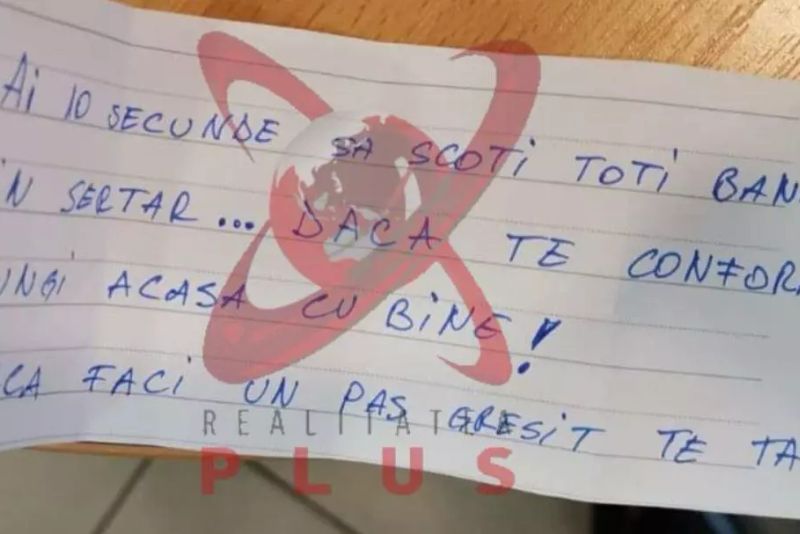 Ai 10 SECUNDE SA SCOTi TOTi BAN
iN SERTAR... DACA TE CONFOR
UNGi ACASA CU BiNE!
CA FACi UN PAS GRESiT TE TA
REALITATEA
PLUS